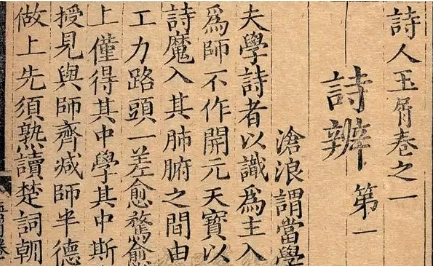 詩人玉屑卷之一
詩辨第一
滄浪謂當學
夫學詩者以識為主入
爲師不作開元天寶以
詩魔入其肺腑之間由
工力路頭一差愈騖愈
上僅得其中學其中斯
授見與師齊減師半德
做上先須熟讀楚詞朝